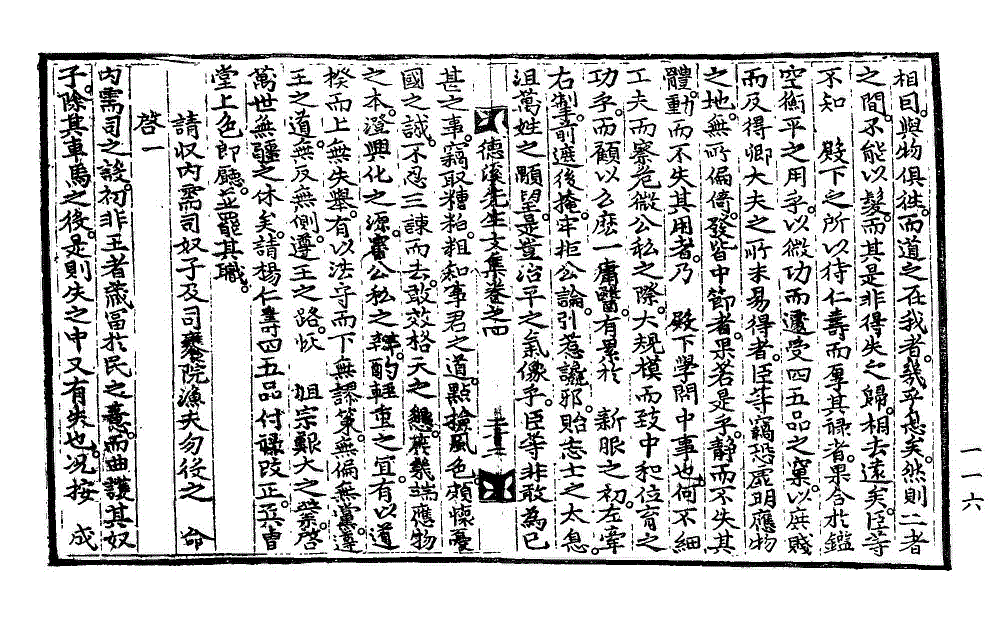 相目。與物俱往。而道之在我者。幾乎息矣。然則二者
之間。不能以髮。而其是非得失之歸。相去遠矣。臣等
不知 殿下之所以待仁壽而厚其祿者。果合於鑑
空衡平之用乎。以微功而遷受四五品之窠。以庶賤
而反得卿大夫之所未易得者。臣等竊恐虛明應物
之地。無所偏倚。發皆中節者。果若是乎。靜而不失其
體。動而不失其用者。乃 殿下學問中事也。何不細
工夫而察危微公私之際。大規模而致中和位育之
功乎。而顧以么麽一庸醫。有累於 新服之初。左牽
右掣。前遮後掩。牢拒公論。引惹讒邪。貽志士之太息。
沮萬姓之顒望。是豈治平之氣像乎。臣等非敢爲已
德溪先生文集卷之四
甚之事。竊取糟粕。粗知事君之道。點檢風色。頗懷憂
國之誠。不忍三諫而去。敢效格天之懇。冀幾端應物
之本。澄興化之源。審公私之辨。酌輕重之宜。有以道
揆而上無失擧。有以法守而下無謬策。無偏無黨。遵
王之道。無反無側。遵王之路。恢 祖宗艱大之業。啓
萬世無疆之休矣。請楊仁壽四五品付祿改正。兵曹
堂上色郞廳。並罷其職。
請收內需司奴子及司饔院漁夫勿役之 命
啓一
內需司之設。初非王者藏富於民之意。而曲護其奴
子。除其車馬之後。是則失之中又有失也。况按 成
一一六